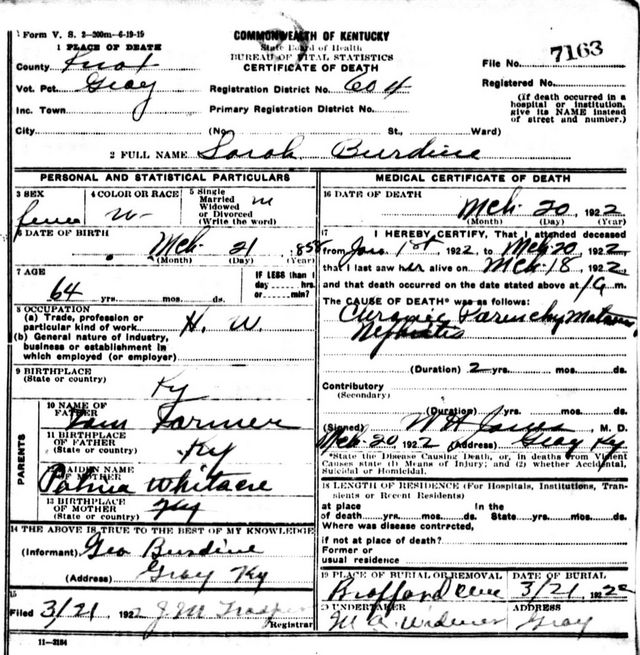 Form V. S. 2-200m-6-19-19
COMMONWEALTH OF KENTUCKY
State Board of Health
BUREAU OF VITAL STATISTICS
CERTIFICATE OF DEATH
File No. 7163
1 PLACE OF DEATH
County Knox
Vot. Pct. Gray
Registration District No. 604
Registered No.
Inc. Town
Primary Registration District No.
(If death occurred in a
hospital or institution,
give its NAME instead
of street and number.)
City
(No. St., Ward)
2 FULL NAME Sarah Burdine
PERSONAL AND STATISTICAL PARTICULARS
3 SEX
4 COLOR OR RACE W
5 Single
Married
Widowed
or Divorced
(Write the word) m
6 DATE OF BIRTH
Mch 21 1858
(Month) (Day) (Year)
7 AGE
64 yrs. mos. ds.
IF LESS than 1
day hrs.
or min?
8 OCCUPATION
(a) Trade, profession or
particular kind of work H. W.
(b) General nature of industry,
business or establishment in
which employed (or employer)
9 BIRTHPLACE
(State or country) Ky
PARENTS
10 NAME OF
FATHER Farmer
11 BIRTHPLACE
OF FATHER
(State or country) Ky
12 MAIDEN NAME
OF MOTHER Whitacre
13 BIRTHPLACE
OF MOTHER
(State or country) Ky
14 THE ABOVE IS TRUE TO THE BEST OF MY KNOWLEDGE
(Informant) Geo Burdine
(Address) Gray Ky
15
Filed 3/21 1922 J M
Registrar
11-3184
MEDICAL CERTIFICATE OF DEATH
16 DATE OF DEATH
Mch 20 1922
(Month) (Day) (Year)
17 I HEREBY CERTIFY, That I attended deceased
from Jan 1st 1922 to Mch 20 1922
that I last saw her alive on Mch 18 1922
and that death occurred on the date stated above at m.
The CAUSE OF DEATH* was as follows:
Chronic
Nephritis
(Duration) 2 yrs. mos. ds.
Contributory
(Secondary)
(Duration) yrs. mos. ds.
(Signed) W H Jones M. D.
Mch 20 1922 (Address) Gray Ky
*State the Disease Causing Death, or, in deaths from Violent
Causes state (1) Means of Injury; and (2) whether Accidental,
Suicidal or Homicidal.
18 LENGTH OF RESIDENCE (For Hospitals, Institutions, Tran-
sients or Recent Residents)
at place In the
of death yrs. mos. ds. State yrs. mos. ds.
Where was disease contracted,
if not at place of death?
Former or
usual residence
19 PLACE OF BURIAL OR REMOVAL DATE OF BURIAL
3/21 1922
20 UNDERTAKER ADDRESS
Gray